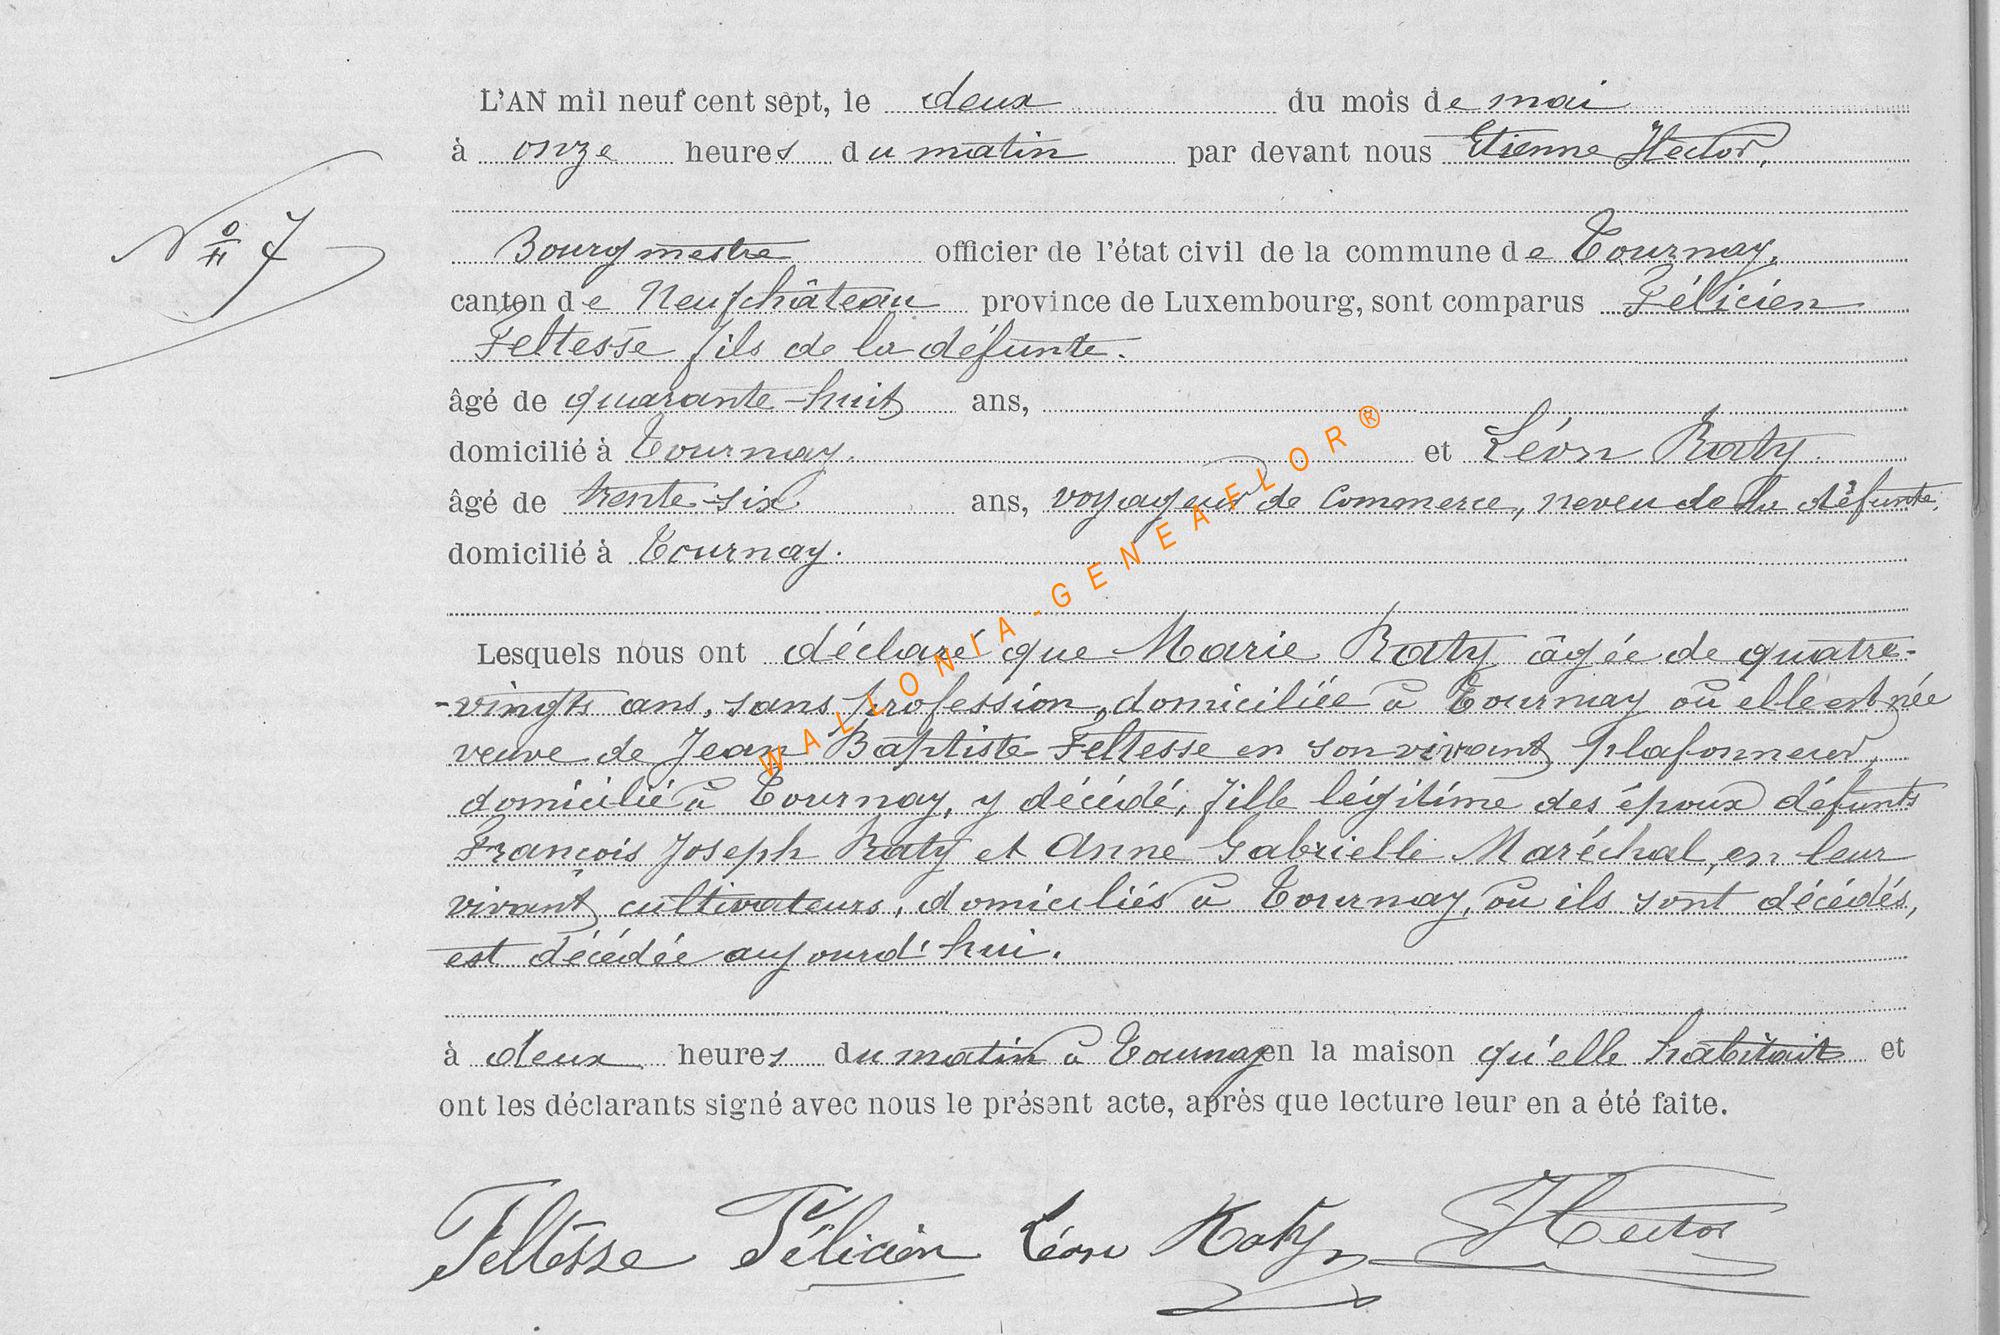 L'AN mil neuf cent sept, le deux du mois de mai
à onze heures du matin par devant nous Etienne Hector,
N° 7
Bourgmestre officier de l'état civil de la commune de Tournay,
canton de Neufchâteau province de Luxembourg, sont comparus Félicien
Feltesse fils de la défunte.
âgé de quarante-huit ans,
domicilié à Tournay. et Léon Raty
âgé de trente-six ans, voyageur de commerce, neveu de la défunte,
domicilié à Tournay.
Lesquels nous ont déclaré que Marie Raty âgée de quatre-
-vingts ans, sans profession, domiciliée à Tournay où elle est née
veuve de Jean Baptiste Feltesse en son vivant plafonneur,
domicilié à Tournay, y décédé, fille légitime des époux défunts
François Joseph Raty et Anne Gabrielle Maréchal, en leur
vivant cultivateurs, domiciliés à Tournay, où ils sont décédés,
est décédée aujourd'hui.
à deux heures du matin à Tournay en la maison qu'elle habitait et
ont les déclarants signé avec nous le présent acte, après que lecture leur en a été faite.
Feltesse Félicien Léon Raty Hector
WALLONIA-GENEAFLOR®